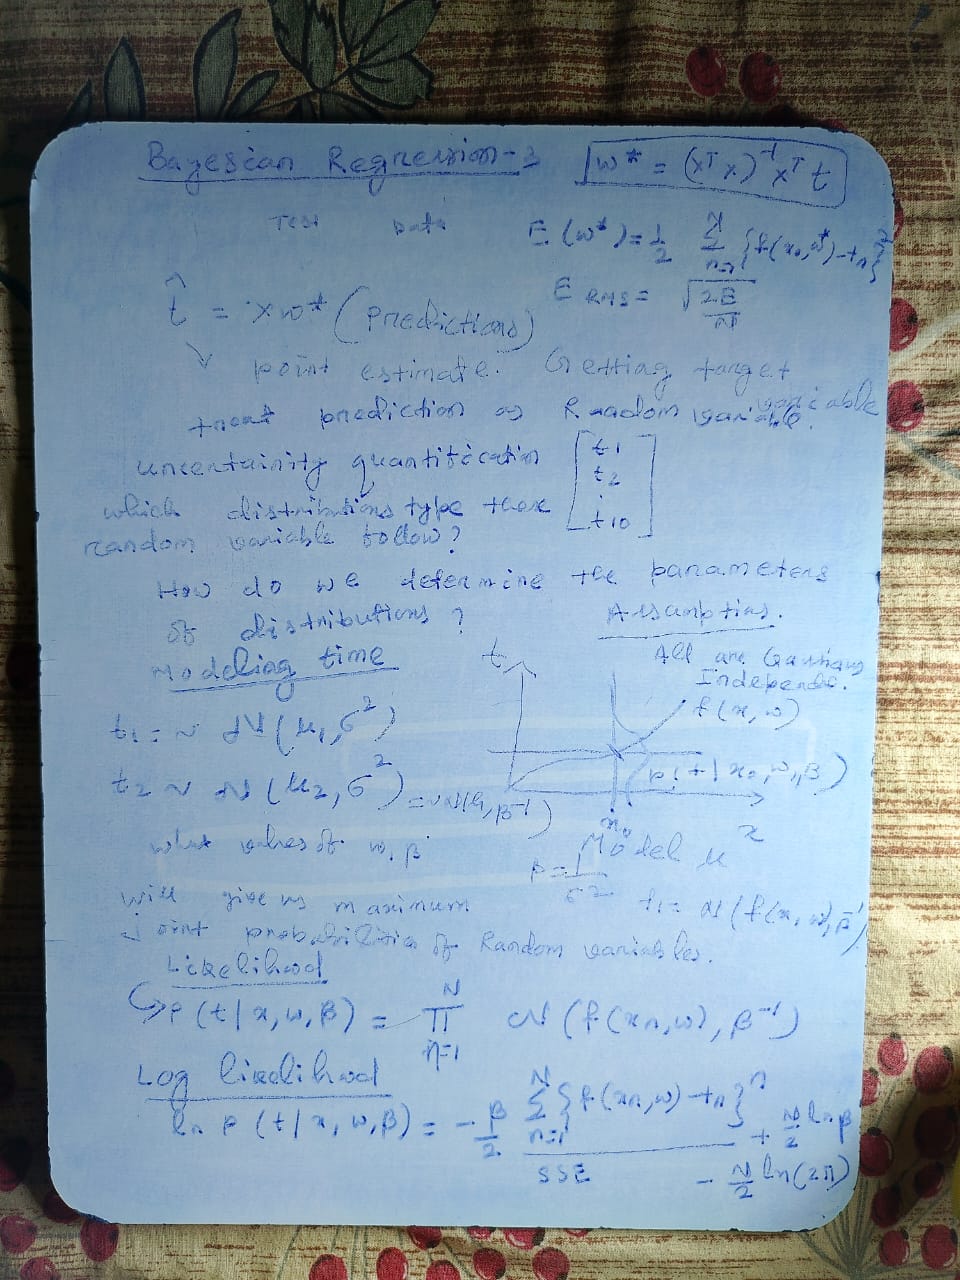 Bayesian Regression-3
w* = (xᵀx)⁻¹xᵀt
Test Data
E(w*) = 1/2 Σ {f(xₙ,w*)-tₙ}²
E RMS = √(2E/N)
t̂ = xw* (predictions)
point estimate. Getting target
variable
treat prediction as Random variable.
uncertainity quantification
[t1 t2 . t10]
which distributions type these
random variable follow?
How do we determine the parameters
of distributions?
Assumptins.
Modeling time
All are Gaussians
Independe.
t
f(x,w)
t₁ = ~ N(μ₁,σ²)
p(t|x₀,w,β)
t₂ ~ N(μ₂,σ²) = N(μ,β⁻¹)
x₀
x
what values of w,β
Model μ
β = 1/σ²
will give us maximum
t₁ = N(f(x,w),β⁻¹)
joint probabilities of Random variables.
Likelihood
↪P(t|x,w,β) = Π N n=1 N(f(xn,w), β⁻¹)
Log likelihood
ln P(t|x,w,β) = -β/2 Σ N n=1 {f(xn,w)-tn}ⁿ + N/2 lnβ
SSE
- N/2 ln(2π)